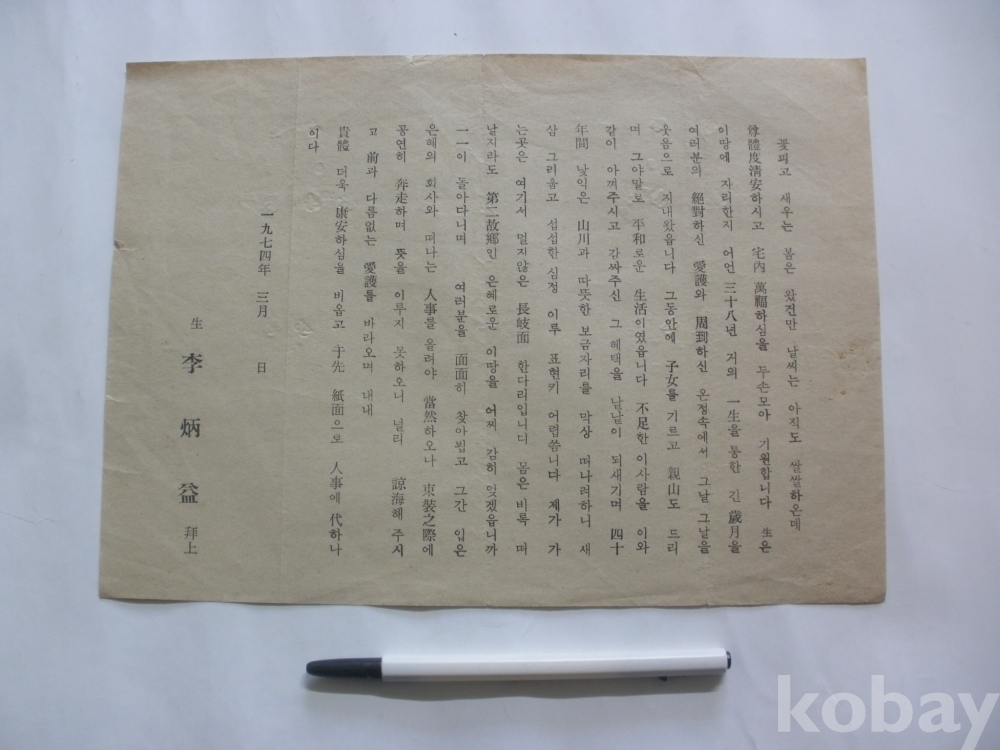 꽃피고 새우는 봄은 왔건만 날씨는 아직도 쌀쌀하온데
尊體度淸安하시고 宅內 萬福하심을 두손모아 기원합니다 生은
이땅에 자리한지 어언 三十八년 거의 一生을 통한 긴 歲月을
여러분의 絕對하신 愛護와 周到하신 온정속에서 그날 그날을
웃음으로 지내왔읍니다 그동안에 子女를 기르고 親山도 드리
며 그야말로 平和로운 生活이였읍니다 不足한 이사람을 이와
같이 아껴주시고 감싸주신 그 혜택을 낱낱이 되새기며 四十
年間 낯익은 山川과 따뜻한 보금자리를 막상 떠나려하니 새
삼 그리웁고 섭섭한 심정 이루 표현키 어렵씀니다 제가 가
는곳은 여기서 멀지않은 長岐面 한다리입니다 몸은 비록 떠
날지라도 第二故鄕인 은혜로운 이땅을 어찌 감히 잊겠읍니까
一一이 돌아다니며 여러분을 面面히 찾아뵙고 그간 입은
은혜의 회사와 떠나는 人事를 올려야 當然하오나 束裝之際에
공연히 奔走하며 뜻을 이루지 못하오니 널리 諒海해 주시
고 前과 다름없는 愛護를 바라오며 내내
貴體 더욱 康安하심을 비옵고 于先 紙面으로 人事에 代하나
이다
一九七四年 三月 日
生 李炳益 拜上
kobay